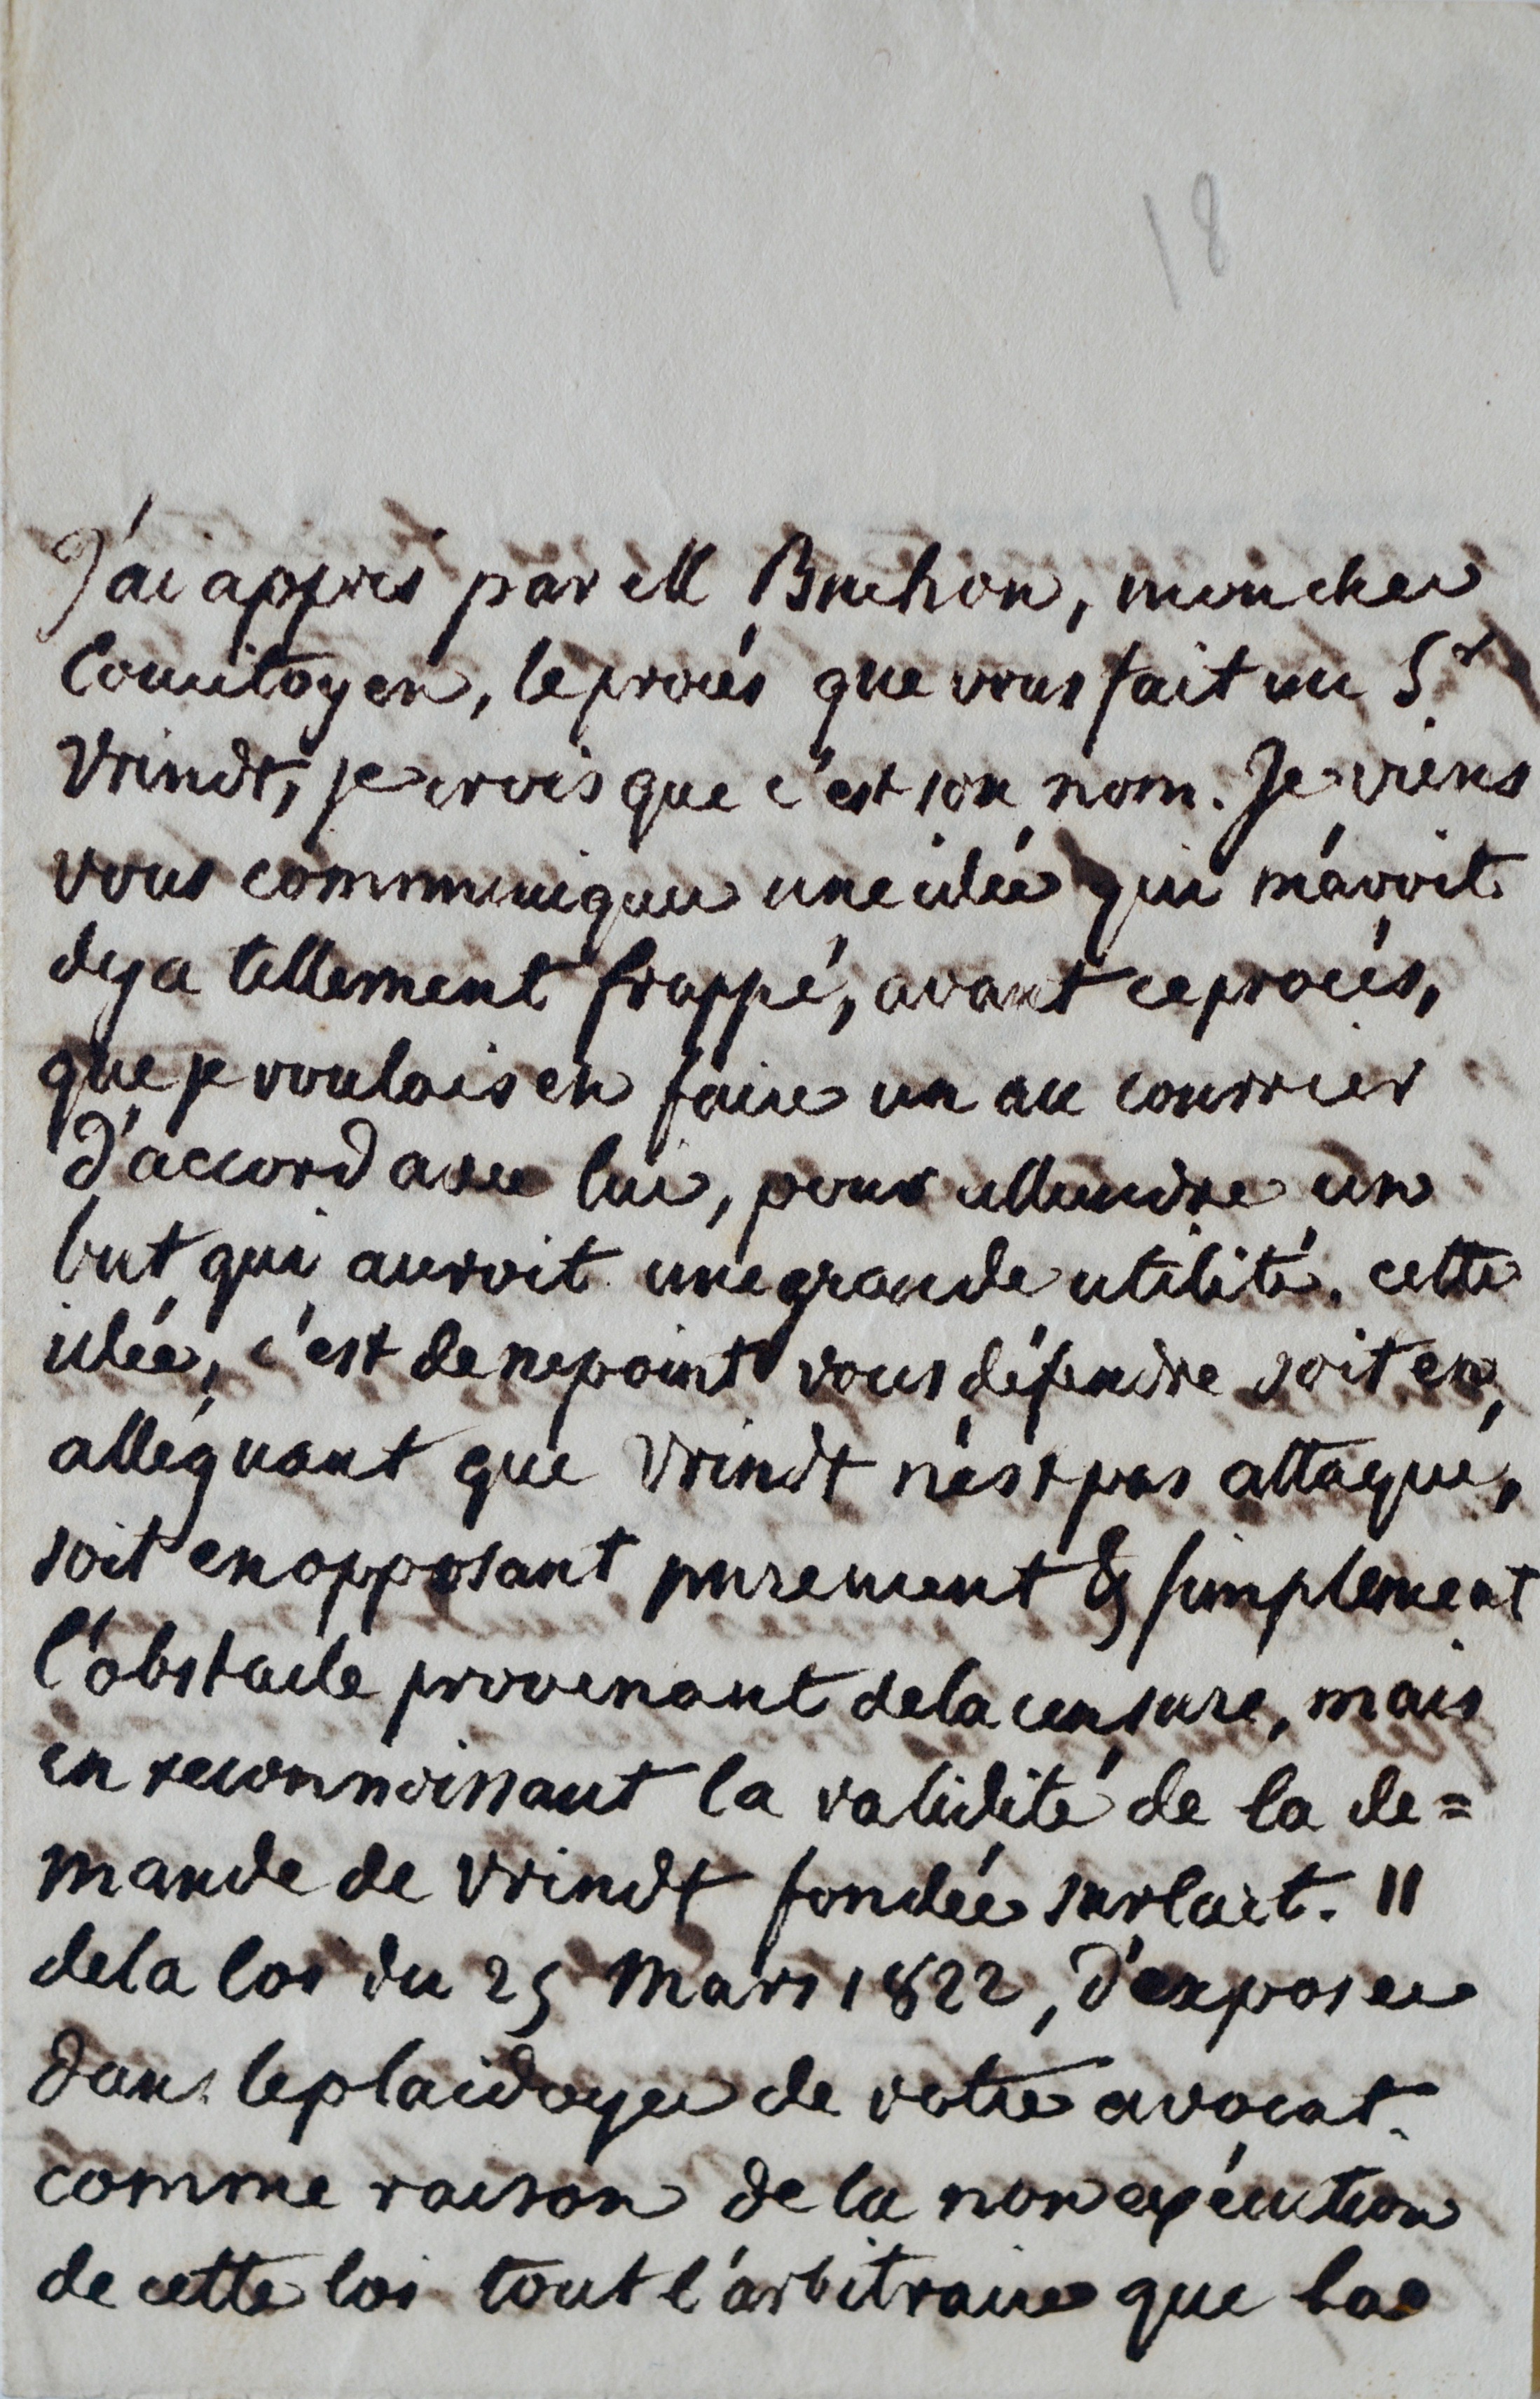 18
J'ai appris par M Buchon, mon cher
Concitoyen, le procès que vous fait un Sr
Vrindt, je crois que c'est son nom. Je viens
vous communiquer une idée qui m'avoit
deja tellement frappé, avant ce procès,
que je voulois en faire un au courrier
d'accord avec lui, pour atteindre un
but qui auroit une grande utilité. cette
idée, c'est de ne point vous défendre soit en
alléguant que Vrindt n'est pas attaqué,
soit en opposant purement & simplement
l'obstacle provenant de la censure, mais
en reconnoissant la validité de la de=
mande de Vrindt fondée sur l'art. 11
de la loi du 25 Mars 1822, d'exposer
dans le plaidoyer de votre avocat.
comme raison de la non exécution
de cette loi tout l'arbitraire que la